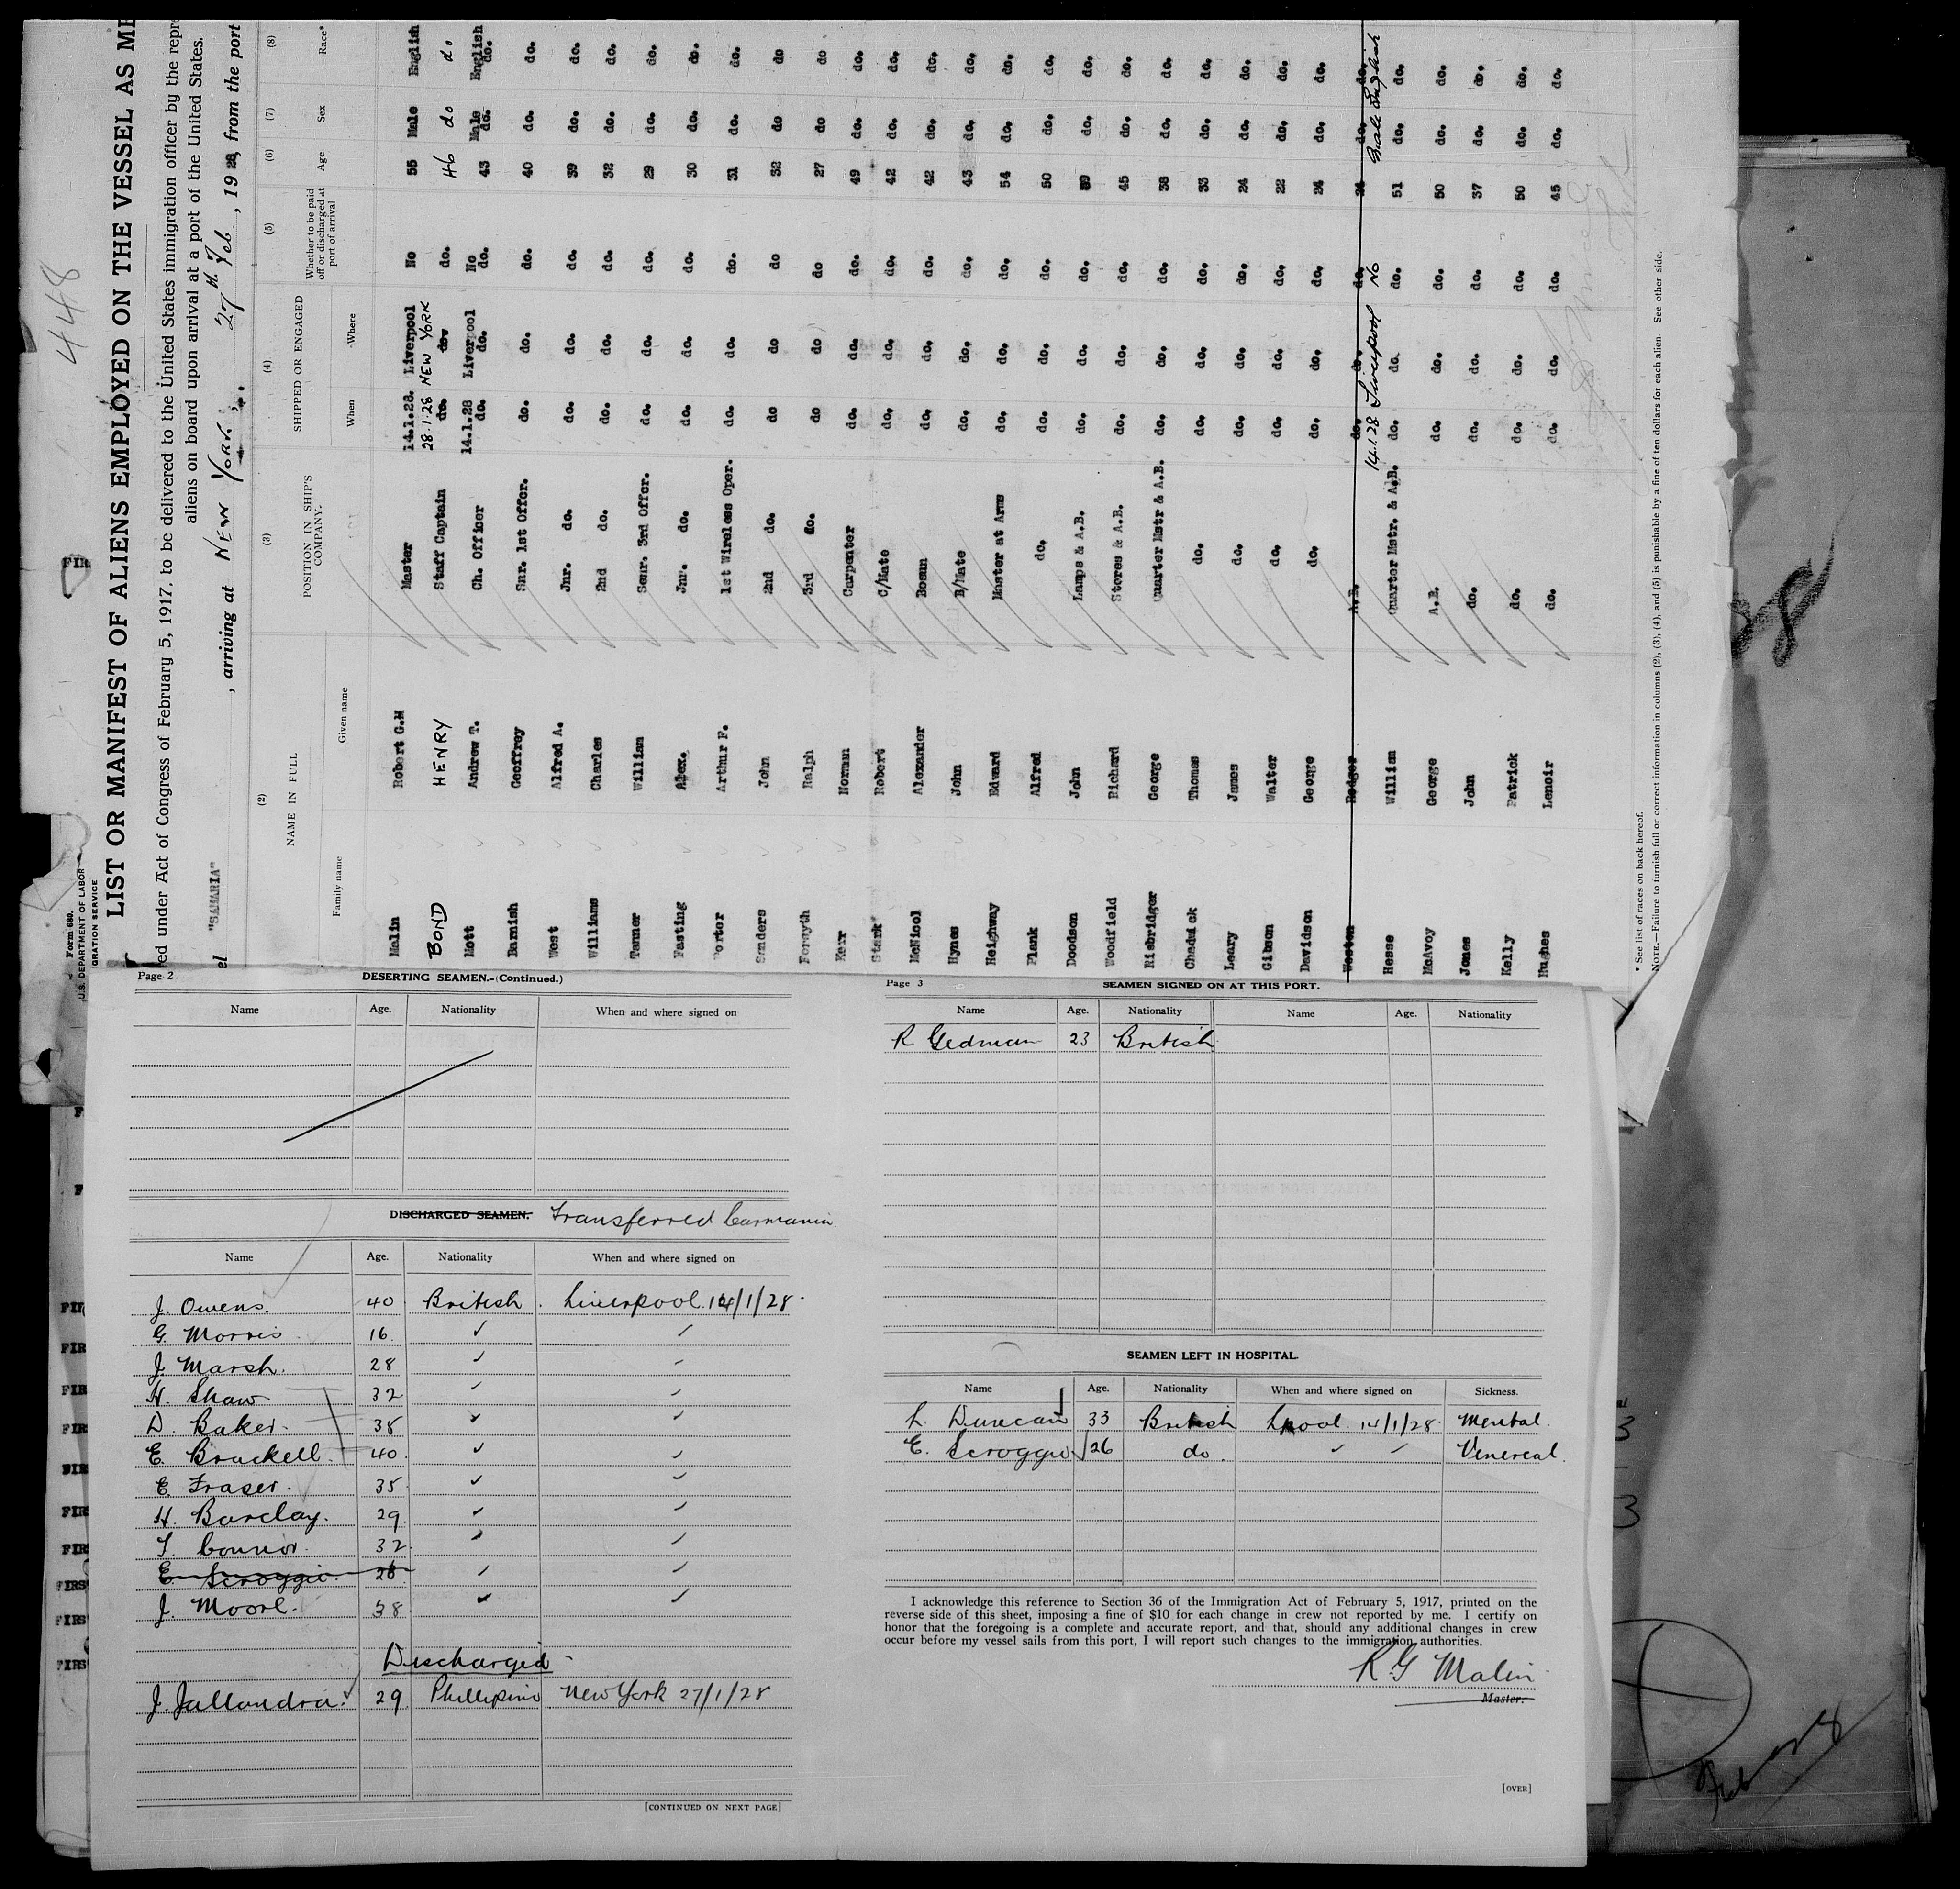 448
Form 680.
U.S. DEPARTMENT OF LABOR
GRATION SERVICE
LIST OR MANIFEST OF ALIENS EMPLOYED ON THE VESSEL AS ME
ed under Act of Congress of February 5, 1917, to be delivered to the United States immigration officer by the repr
aliens on board upon arrival at a port of the United States.
el "SAMARIA" , arriving at NEW YORK , 27th. Feb , 1928, from the port
(2) (3) (4) (5) (6) (7) (8)
NAME IN FULL POSITION IN SHIP'S COMPANY. SHIPPED OR ENGAGED Whether to be paid off or discharged at port of arrival Age Sex Race*
Family name Given name When Where
Malin Robert G.M Master 14.1.28. Liverpool No 55 Male English
BOND HENRY Staff Captain 28.1.28 do. NEW YORK do. do. 46 do do
Mott Andrew T. Ch. Officer 14.1.28 do. Liverpool do. No do. 43 Male do. English do.
Barnish Geoffrey Snr. 1st Offcr. do. do. do. 40 do. do.
West Alfred A. Jnr. do. do. do. do. 39 do. do.
Williams Charles 2nd do. do. do. do. 32 do. do.
Tanner William Senr. 3rd Offcr. do. do. do. 29 do. do.
Fasting Alex. Jnr. do. do. do. do. 30 do. do.
Porter Arthur F. 1st Wireless Oper. do. do. do. 31 do. do.
Sanders John 2nd do. do do do 32 do do
Forsyth Ralph 3rd do. do do do 27 do do
Kerr Norman Carpenter do. do. do. 49 do. do.
Stark Robert C/Mate do. do. do. 42 do. do.
McNicol Alexander Bosun do. do. do. 42 do. do.
Hynes John B/Mate do. do. do. 43 do. do.
Heighway Edward Master at Arms do. do. do. 54 do. do.
Plank Alfred do. do. do. do. 50 do. do.
Doodson John Lamps & A.B. do. do. do. 39 do. do.
Woodfield Richard Stores & A.B. do. do. do. 45 do. do.
Risbridger George Quarter Mstr & A.B. do. do. do. 38 do. do.
Chadwick Thomas do. do. do. do. 33 do. do.
Leary James do. do. do. do. 24 do. do.
Gibson Walter do. do. do. do. 22 do. do.
Davidson George do. do. do. do. 24 do. do.
Weston Rodger A.B. do. do. do. 24 do. do.
14.1.28 Liverpool No Male English
Hesse William Quarter Mstr. & A.B. do. do. do. 51 do. do.
McAvoy George A.B. do. do. do. 50 do. do.
Jones John do. do. do. do. 37 do. do.
Kelly Patrick do. do. do. do. 50 do. do.
Hughes Lenoir do. do. do. do. 45 do. do.
* See list of races on back hereof.
NOTE.—Failure to furnish full or correct information in columns (2), (3), (4), and (5) is punishable by a fine of ten dollars for each alien. See other side.
Page 2
DESERTING SEAMEN.-(Continued.)
Name Age. Nationality When and where signed on
DISCHARGED SEAMEN. Transferred Carmania
Name Age. Nationality When and where signed on
J. Owens. 40 British. Liverpool.14/1/28.
G. Morris 16. ✓ ✓
J. Marsh. 28 ✓ ✓
H. Shaw 32 ✓ ✓
D. Baker. 38 ✓ ✓
E. Brackell. 40. ✓ ✓
E. Fraser. 35 ✓ ✓
H. Barclay. 29. ✓ ✓
T. Connor. 32. ✓ ✓
E. Scroggie. 26. ✓ ✓
J. Moore. 38 ✓ ✓
Discharged
J. Jallandra. 29 Phillipino New York 27/1/28
[CONTINUED ON NEXT PAGE]
Page 3
SEAMEN SIGNED ON AT THIS PORT.
Name Age. Nationality Name Age. Nationality
R Gedman 23 British
SEAMEN LEFT IN HOSPITAL.
Name Age. Nationality When and where signed on Sickness.
L. Duncan 33 British Lpool 14/1/28. Mental.
E. Scroggie 26 do. ✓ ✓ Venereal.
I acknowledge this reference to Section 36 of the Immigration Act of February 5, 1917, printed on the
reverse side of this sheet, imposing a fine of $10 for each change in crew not reported by me. I certify on
honor that the foregoing is a complete and accurate report, and that, should any additional changes in crew
occur before my vessel sails from this port, I will report such changes to the immigration authorities.
R G Malin
Master.
[OVER]